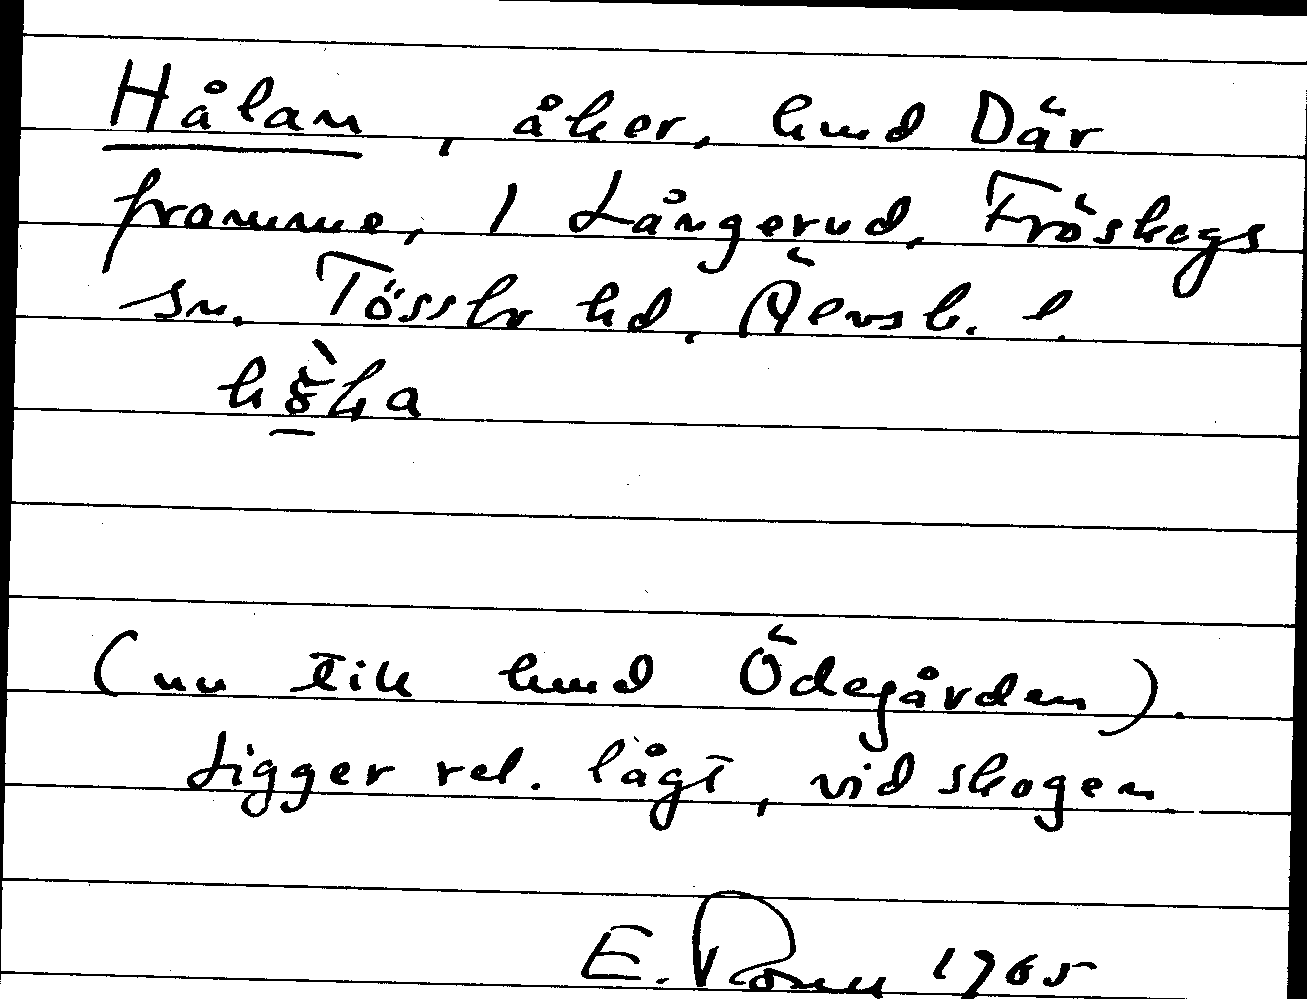 Hålan, åker, hmd Där
framme, 1 Långerud, Fröskogs
sn. Tössbo hd, Älvsb. l.
(nu till hmd Ödegården).
Ligger rel. lågt, vid skogen.
E. 1965